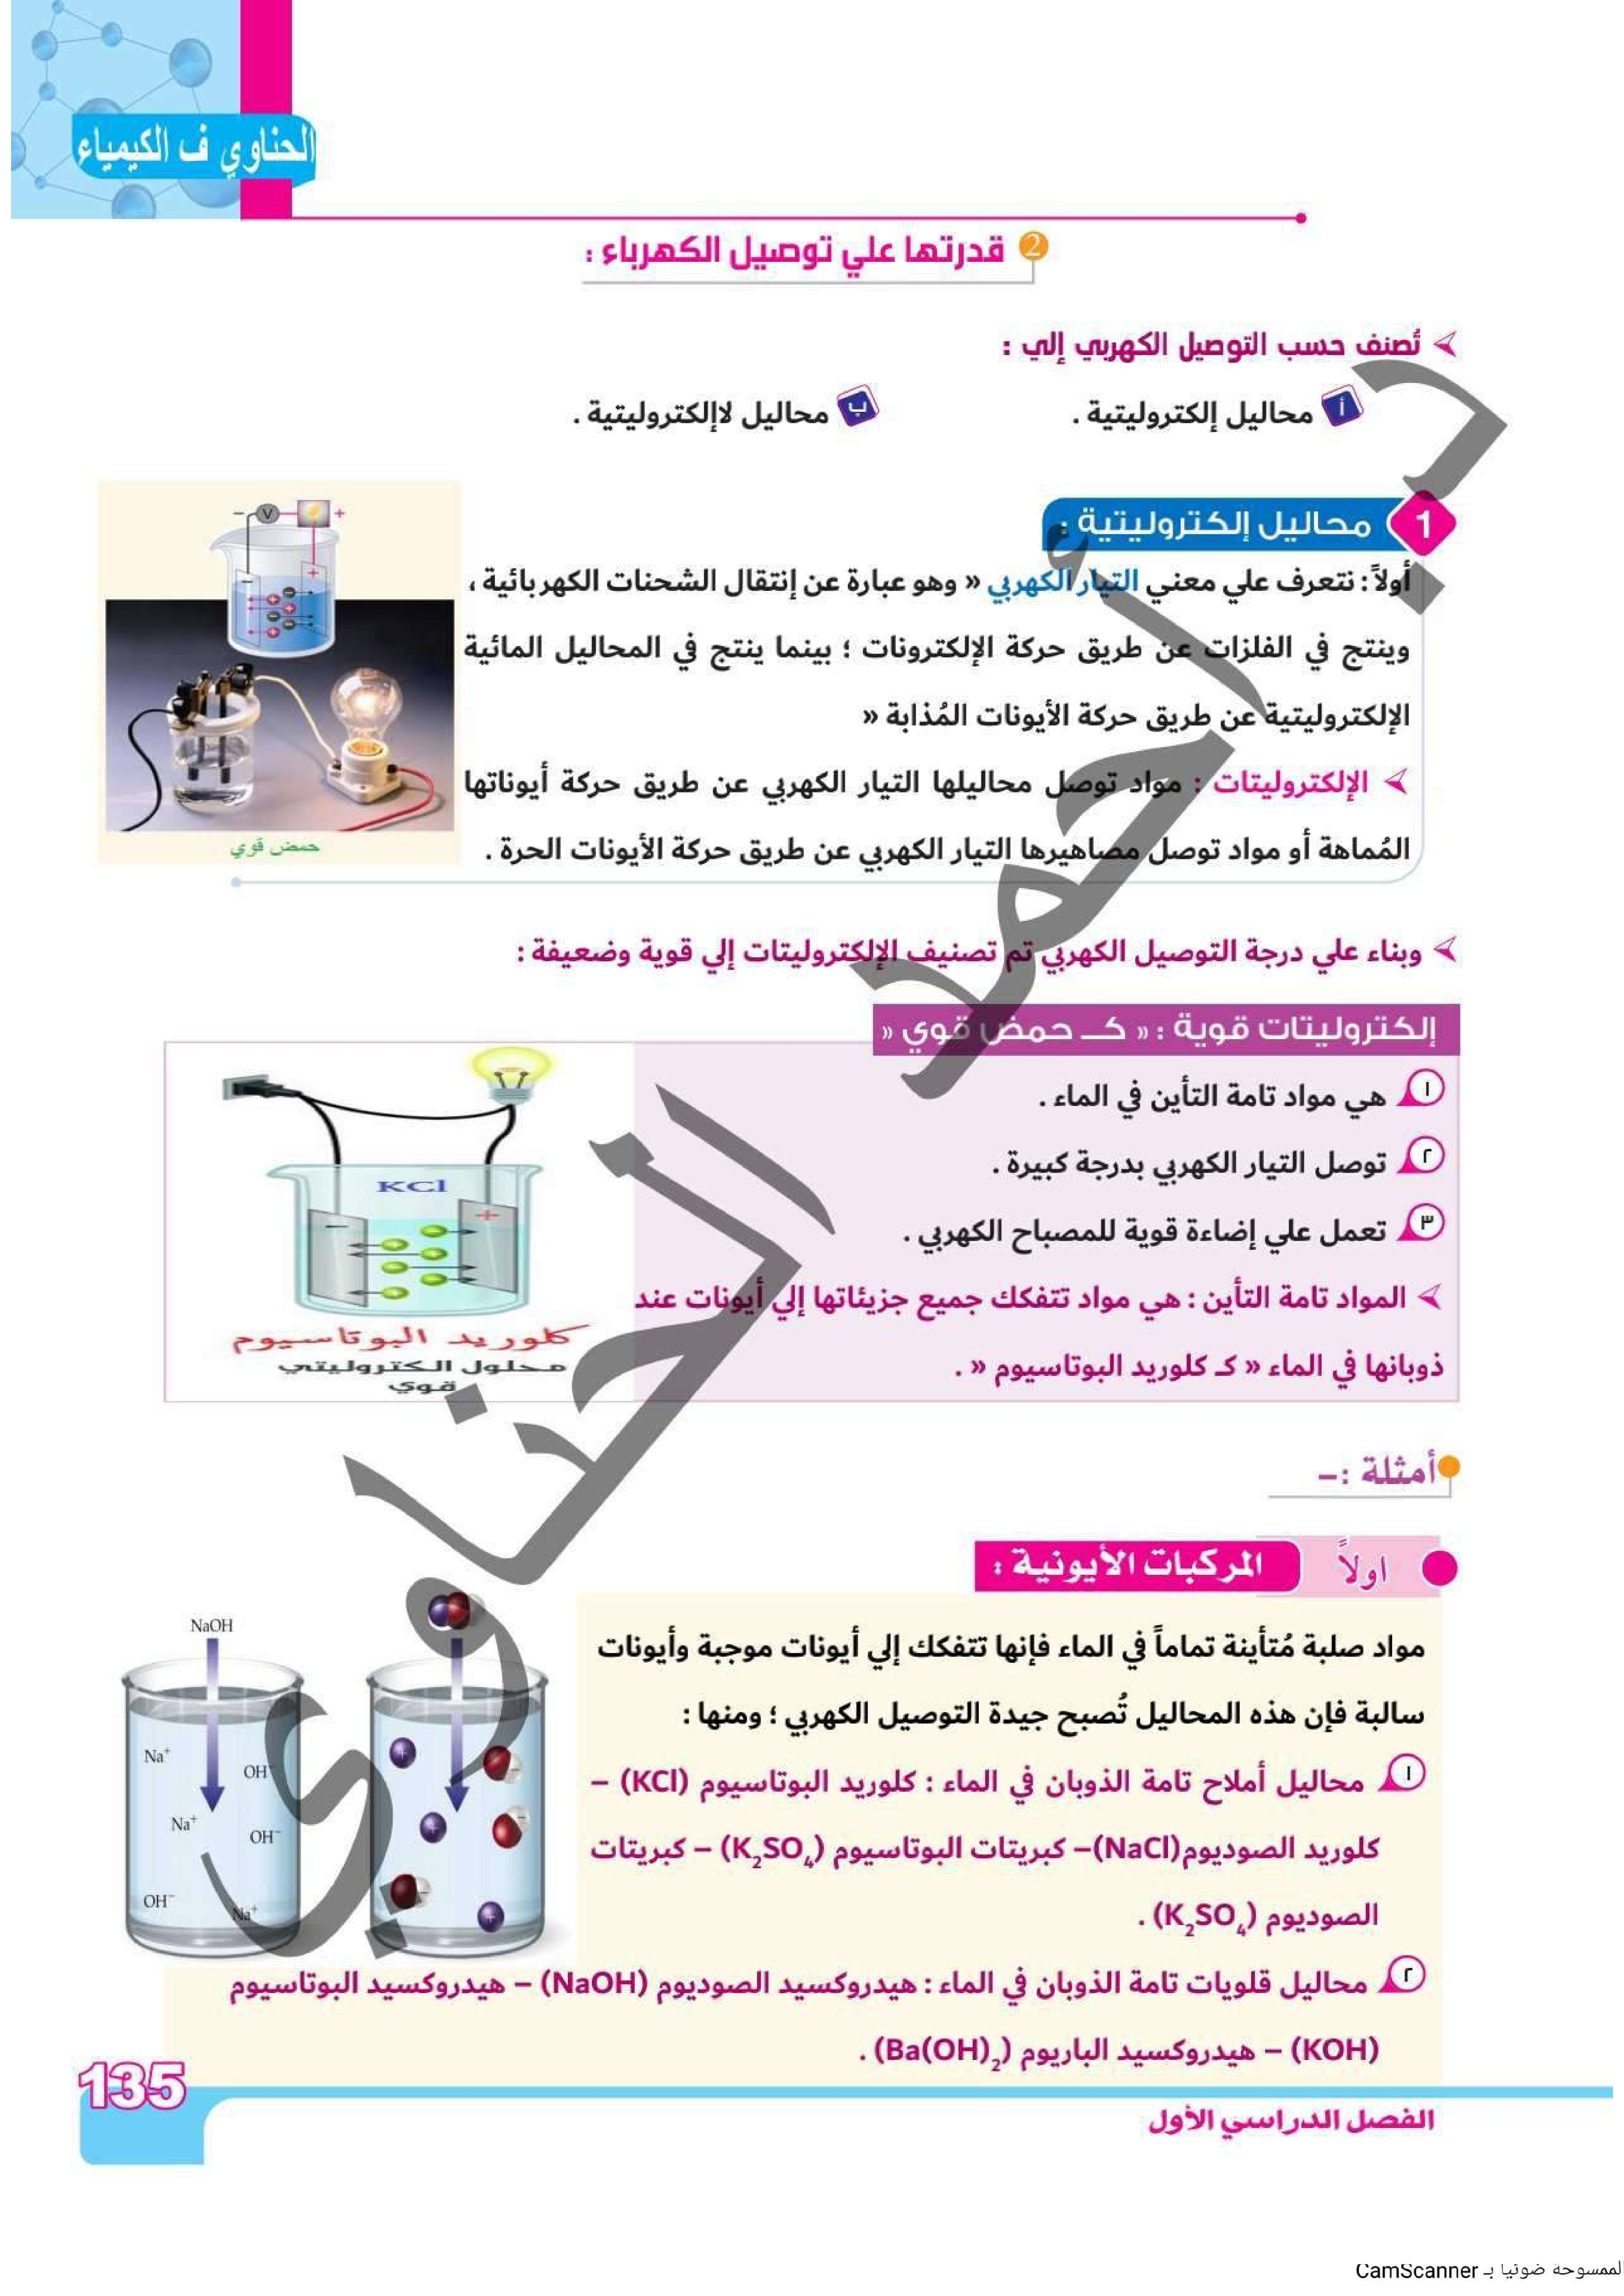 الحناوي ف الكيمياء
2 قدرتها علي توصيل الكهرباء :
تُصنف حسب التوصيل الكهربي إلي :
أ محاليل إلكتروليتية .
ب محاليل لاإلكتروليتية .
1 محاليل إلكتروليتية :
أولاً : نتعرف علي معني التيار الكهربي « وهو عبارة عن إنتقال الشحنات الكهربائية ،
وينتج في الفلزات عن طريق حركة الإلكترونات ؛ بينما ينتج في المحاليل المائية
الإلكتروليتية عن طريق حركة الأيونات المُذابة «
الإلكتروليتات : مواد توصل محاليلها التيار الكهربي عن طريق حركة أيوناتها
المُماهة أو مواد توصل مصاهيرها التيار الكهربي عن طريق حركة الأيونات الحرة .
– V +
– +
حمض قوي
وبناء علي درجة التوصيل الكهربي تم تصنيف الإلكتروليتات إلي قوية وضعيفة :
إلكتروليتات قوية : « كـ حمض قوي «
١ هي مواد تامة التأين في الماء .
٢ توصل التيار الكهربي بدرجة كبيرة .
٣ تعمل علي إضاءة قوية للمصباح الكهربي .
المواد تامة التأين : هي مواد تتفكك جميع جزيئاتها إلي أيونات عند
ذوبانها في الماء « كـ كلوريد البوتاسيوم « .
KCl
– +
كلوريد البوتاسيوم
محلول الكتروليتي
قوي
أمثلة :–
اولاً المركبات الأيونية :
مواد صلبة مُتأينة تماماً في الماء فإنها تتفكك إلي أيونات موجبة وأيونات
سالبة فإن هذه المحاليل تُصبح جيدة التوصيل الكهربي ؛ ومنها :
١ محاليل أملاح تامة الذوبان في الماء : كلوريد البوتاسيوم (KCl) –
كلوريد الصوديوم(NaCl)– كبريتات البوتاسيوم (K₂SO₄) – كبريتات
الصوديوم (K₂SO₄) .
٢ محاليل قلويات تامة الذوبان في الماء : هيدروكسيد الصوديوم (NaOH) – هيدروكسيد البوتاسيوم
(KOH) – هيدروكسيد الباريوم (Ba(OH)₂) .
NaOH
Na⁺
OH⁻
Na⁺
OH⁻
OH⁻
Na⁺
أ. أحمد الحناوي
135
الفصل الدراسي الأول
لممسوحة ضوئيا بـ CamScanner